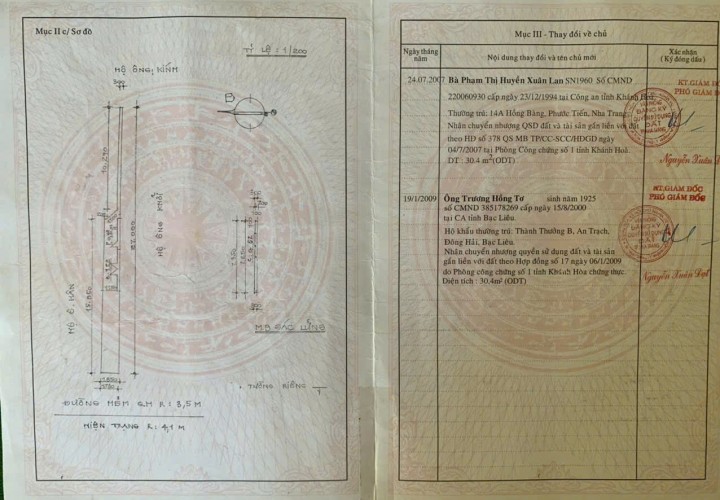 Mục II c/ Sơ đồ
TỶ LỆ : 1/200
HỘ ÔNG KÍNH
B
HỘ ÔNG MNỒI
HỘ Ô. HÂN
M.B GÁC LỬNG
TƯỜNG RIÊNG
ĐƯỜNG HẺM QH R : 3,5 M
HIỆN TRẠNG R : 4,1 M
Mục III - Thay đổi về chủ
Ngày tháng năm
Nội dung thay đổi và tên chủ mới
Xác nhận
(Ký đóng dấu)
24.07.2007
Bà Phạm Thị Huyền Xuân Lan SN1960 Số CMND
220060930 cấp ngày 23/12/1994 tại Công an tỉnh Khánh Hoà,
Thường trú: 14A Hồng Bàng, Phước Tiến, Nha Trang
Nhân chuyển nhượng QSD đất và tài sản gắn liền với đất
theo HĐ số 378 QS MB TP/CC-SCC/HDGD ngày
04/7/2007 tại Phòng Công chứng số 1 tỉnh Khánh Hoà.
DT : 30.4 m²(ODT)
KT.GIÁM ĐỐC
PHÓ GIÁM ĐỐC
Nguyễn Xuân Đạt
19/1/2009
Ông Trương Hồng Tơ sinh năm 1925
số CMND 385178269 cấp ngày 15/8/2000
tại CA tỉnh Bạc Liêu.
Hộ khẩu thường trú: Thành Thưởng B, An Trạch,
Đông Hải, Bạc Liêu.
Nhận chuyển nhượng quyền sử dụng đất và tài sản
gắn liền với đất theo Hợp đồng số 17 ngày 06/1/2009
do Phòng công chứng số 1 tỉnh Khánh Hòa chứng thực.
Diện tích : 30.4m² (ODT)
KT.GIÁM ĐỐC
PHÓ GIÁM ĐỐC
Nguyễn Xuân Đạt